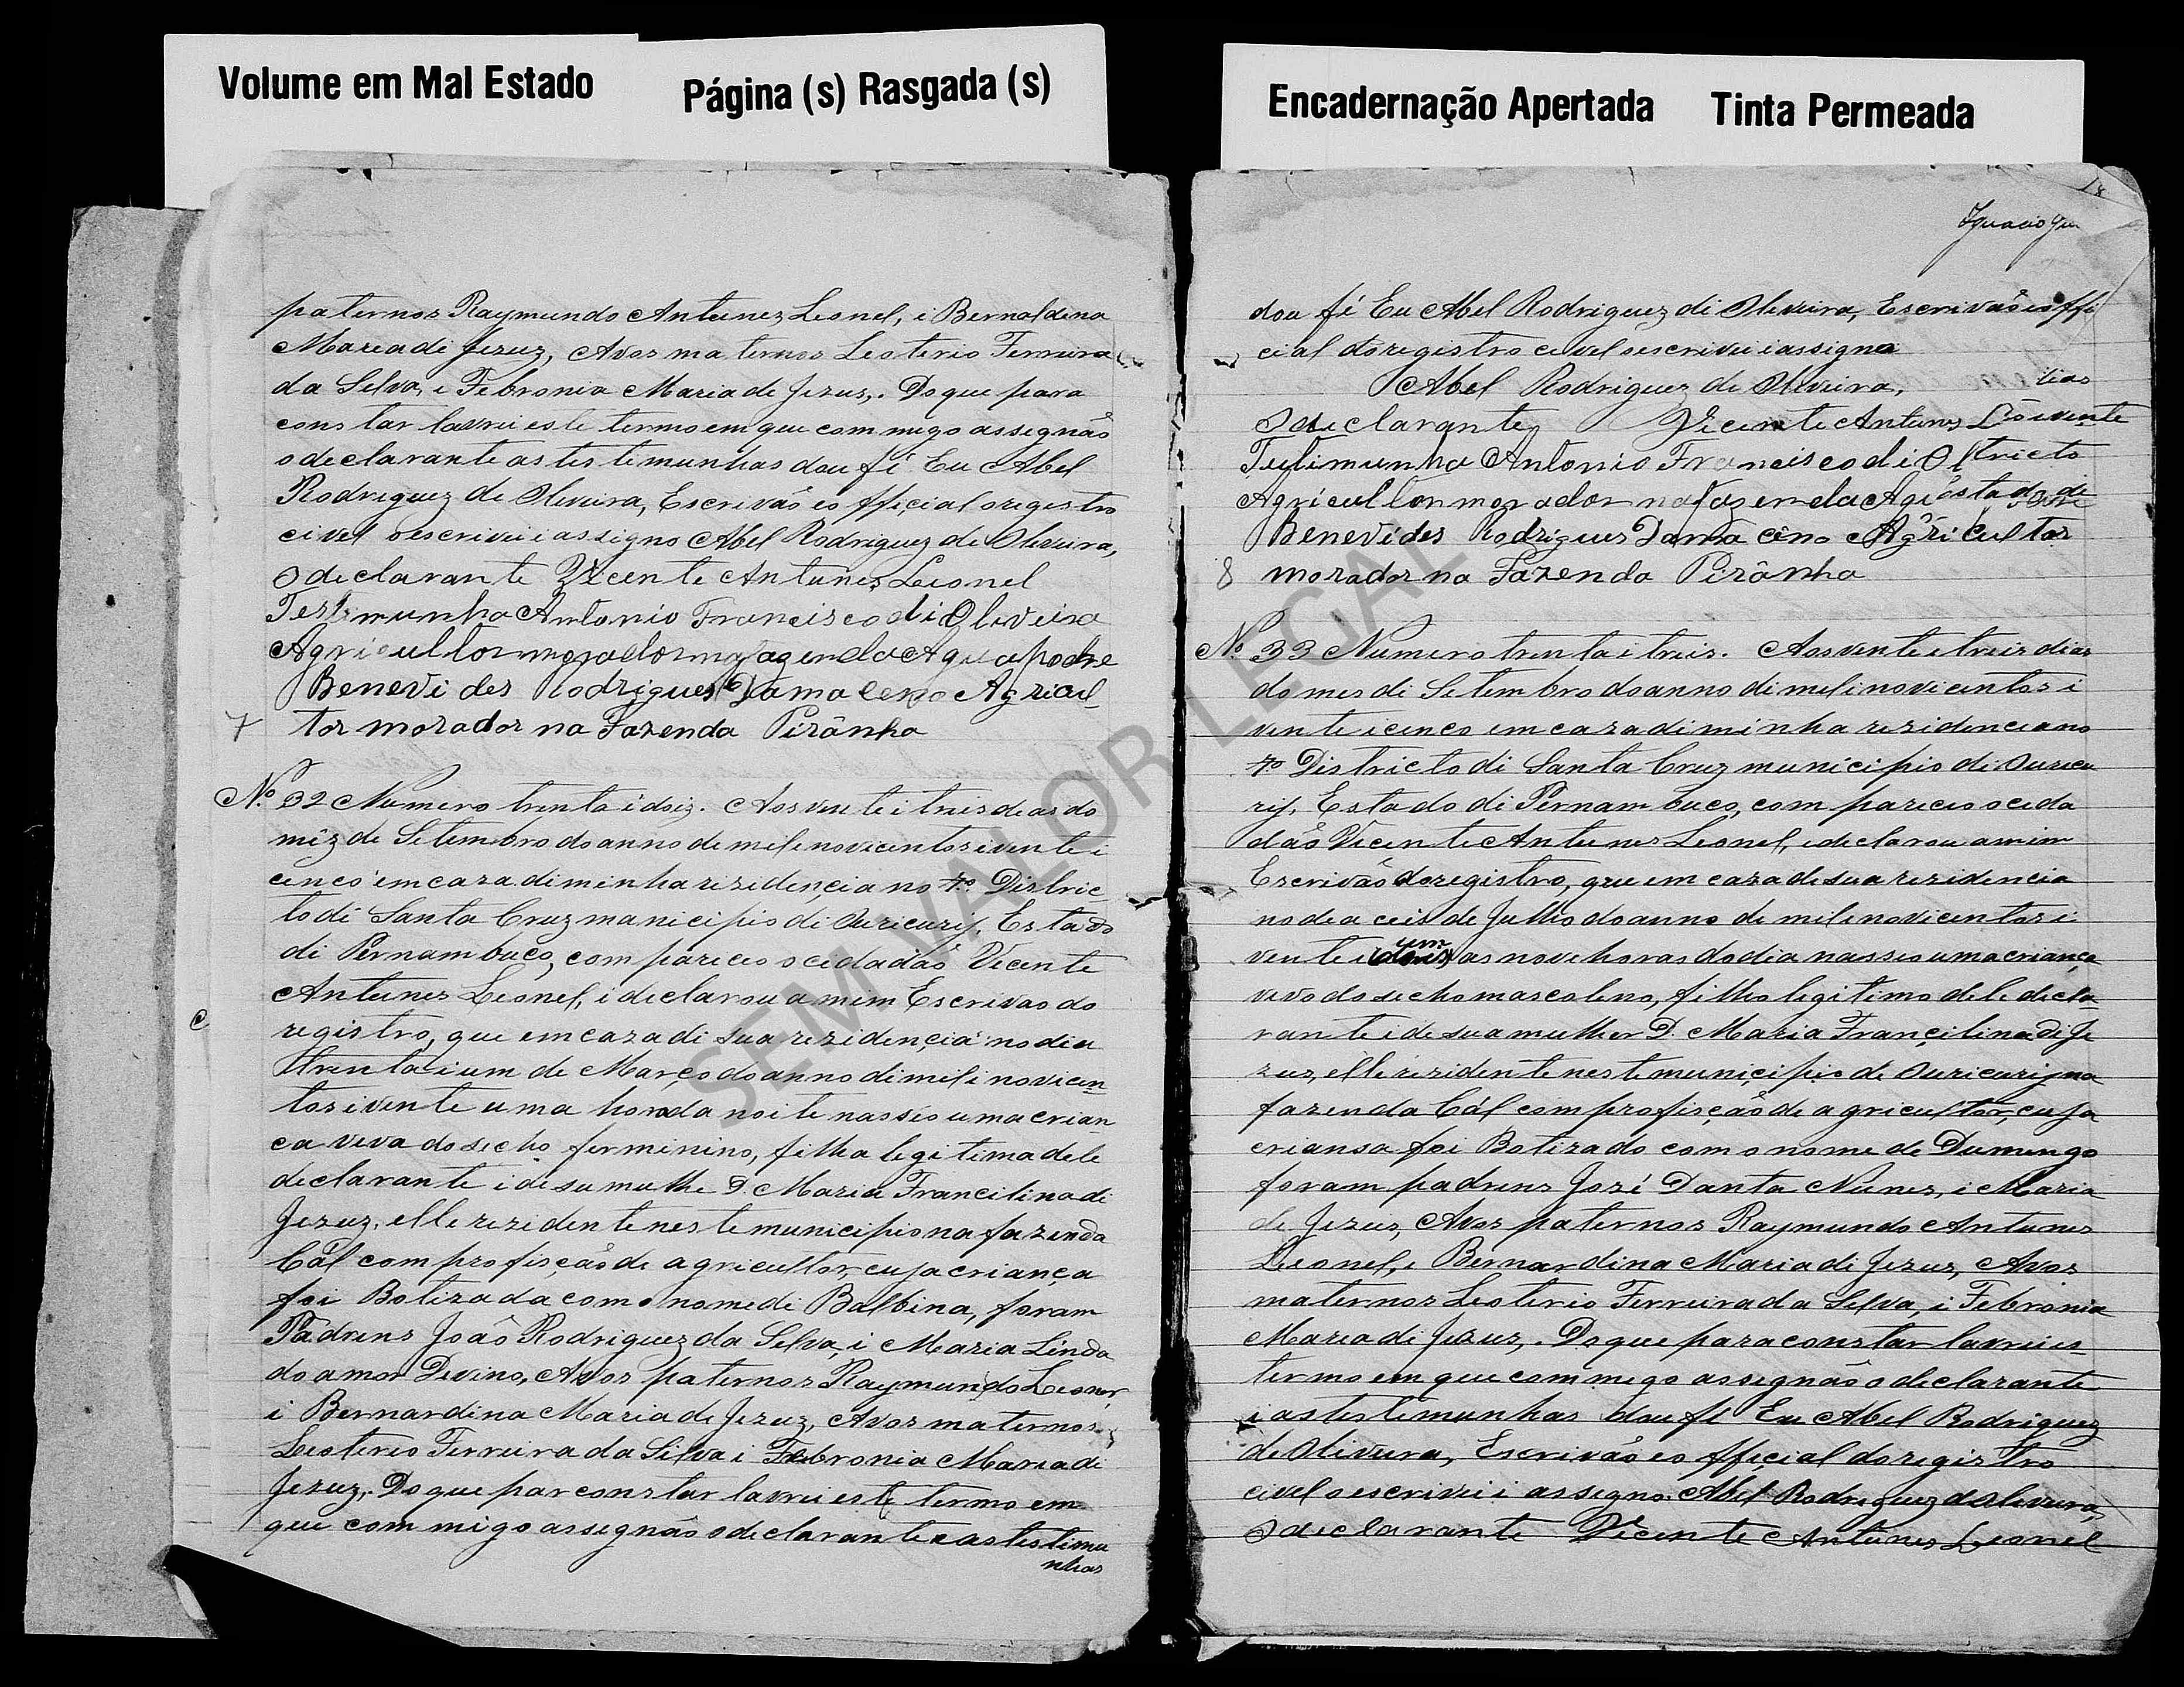 Volume em Mal Estado
Página (s) Rasgada (s)
Encadernação Apertada
Tinta Permeada
paternos Raymundo Antunes Leonel, i Bernaldina
Maria di Jezuz, Avos maternos Leoterio Ferreira
da Silva, i Febronia Maria de Jezus,. Do que para
constar lavrei este termo em que commigo assegnão
o declarante as testemunhas dou fé Eu Abel
Rodriguez de Oliveira, Escrivão eo official o registro
civel o escrivii i assigno Abel Rodriguez de Oliveira,
O declarante Vicente Antunes Leonel
Testemunha Antonio Francisco di Oliveira
Agricultor morador na fazenda Agua podre
Benevides Rodrigues Damaceno Agricul
7 tor morador na Fazenda Pirânha
No. 32 Numero trenta i dois. Aos vente i treis deas do
mêz de Setembro do anno de mil e novicentos i vente i
cenco em caza di minha rezidençia no 4o Distric
to di Santa Cruz municipio di Ouricury, Estado
di Pernambuco, compareceo o cedadão Vicente
Antunes Leonel, i declarou a mim Escrivão do
registro, que em caza di sua rezidençia no dia
trenta i um de Março do anno di mil i novicen
tos i vente uma hora da noite nasseo uma crian
ca viva do secho ferminino, filha legitima dele
declarante i de su mulhe D. Maria Francilina di
Jezuz, elle rezidente neste municipio na fazenda
Cál com profisção de agricultor, cuja criança
foi Botizada com o nome di Balbina, foram
Padrens João Rodriguez da Silva, i Maria Linda
do amor Devino, Avos paternos Raymundo Leonor
i Bernardina Maria de Jezuz, Avos maternos
Leoterio Ferreira da Silva i Febronia Maria di
Jezuz,. Do que par constar lavrei este termo em
que commigo assegnão o declarante as testemu
nhas
18
Ignacio
dou fé Eu Abel Rodriguez di Oliveira, Escrivão eo offi
cial do registro cevel o escrivii i assigno
Abel Rodriguez de Oliveira,
O declarante Vicente Antunes
Testimunha Antonio Francisco di
Agricultor morador na fazenda
Benevides Rodrigues Damacêno Agricultor
8 morador na Fazenda Pirânha
No. 33 Numero trenta i treis. Aos vente i treis dias
do mes di Setembro do anno di mil i novicentos i
vente i cenco em caza di minha rezidencia no
4o Districto di Santa Cruz municipio di Ouricu
ry, Estado di Pernambuco, compareceo o ceda
dão Vicente Antunes Leonel, i declarou a mim
Escrivão do registro, que em caza de sua rezidencia
no dea ceis de Julho do anno de mil i novicentos i
um
vente i as nove horas do dia nasseo uma criança
vivo do secho mascoleno, filho legitimo dele decla
rante i de sua mulher D. Maria Françilina di Je
zuz, elle rezidente neste municipio de Ouricury na
fazenda Cál com profisção de agricultor, cuja
criansa foi Botizado com o nome de Dumingo
foram padrens José Danta Nunes, i Maria
de Jezus, Avos paternos Raymundo Antunes
Leonel, i Bernardina Maria di Jezus, Avos
maternos Leoterio Ferreira da Silva, i Febronia
Maria di Jezuz,. Do que para constar lavrei es
termo em que commego assegnão o declarante
i as testemunhas dou fé Eu Abel Rodriguez
de Olivera, Escrivão eo official do registro
civel o escrivii i assigno Abel Rodriguez de Olivera,
O declarante Vicente Antunes Leonel
SEM VALOR LEGAL